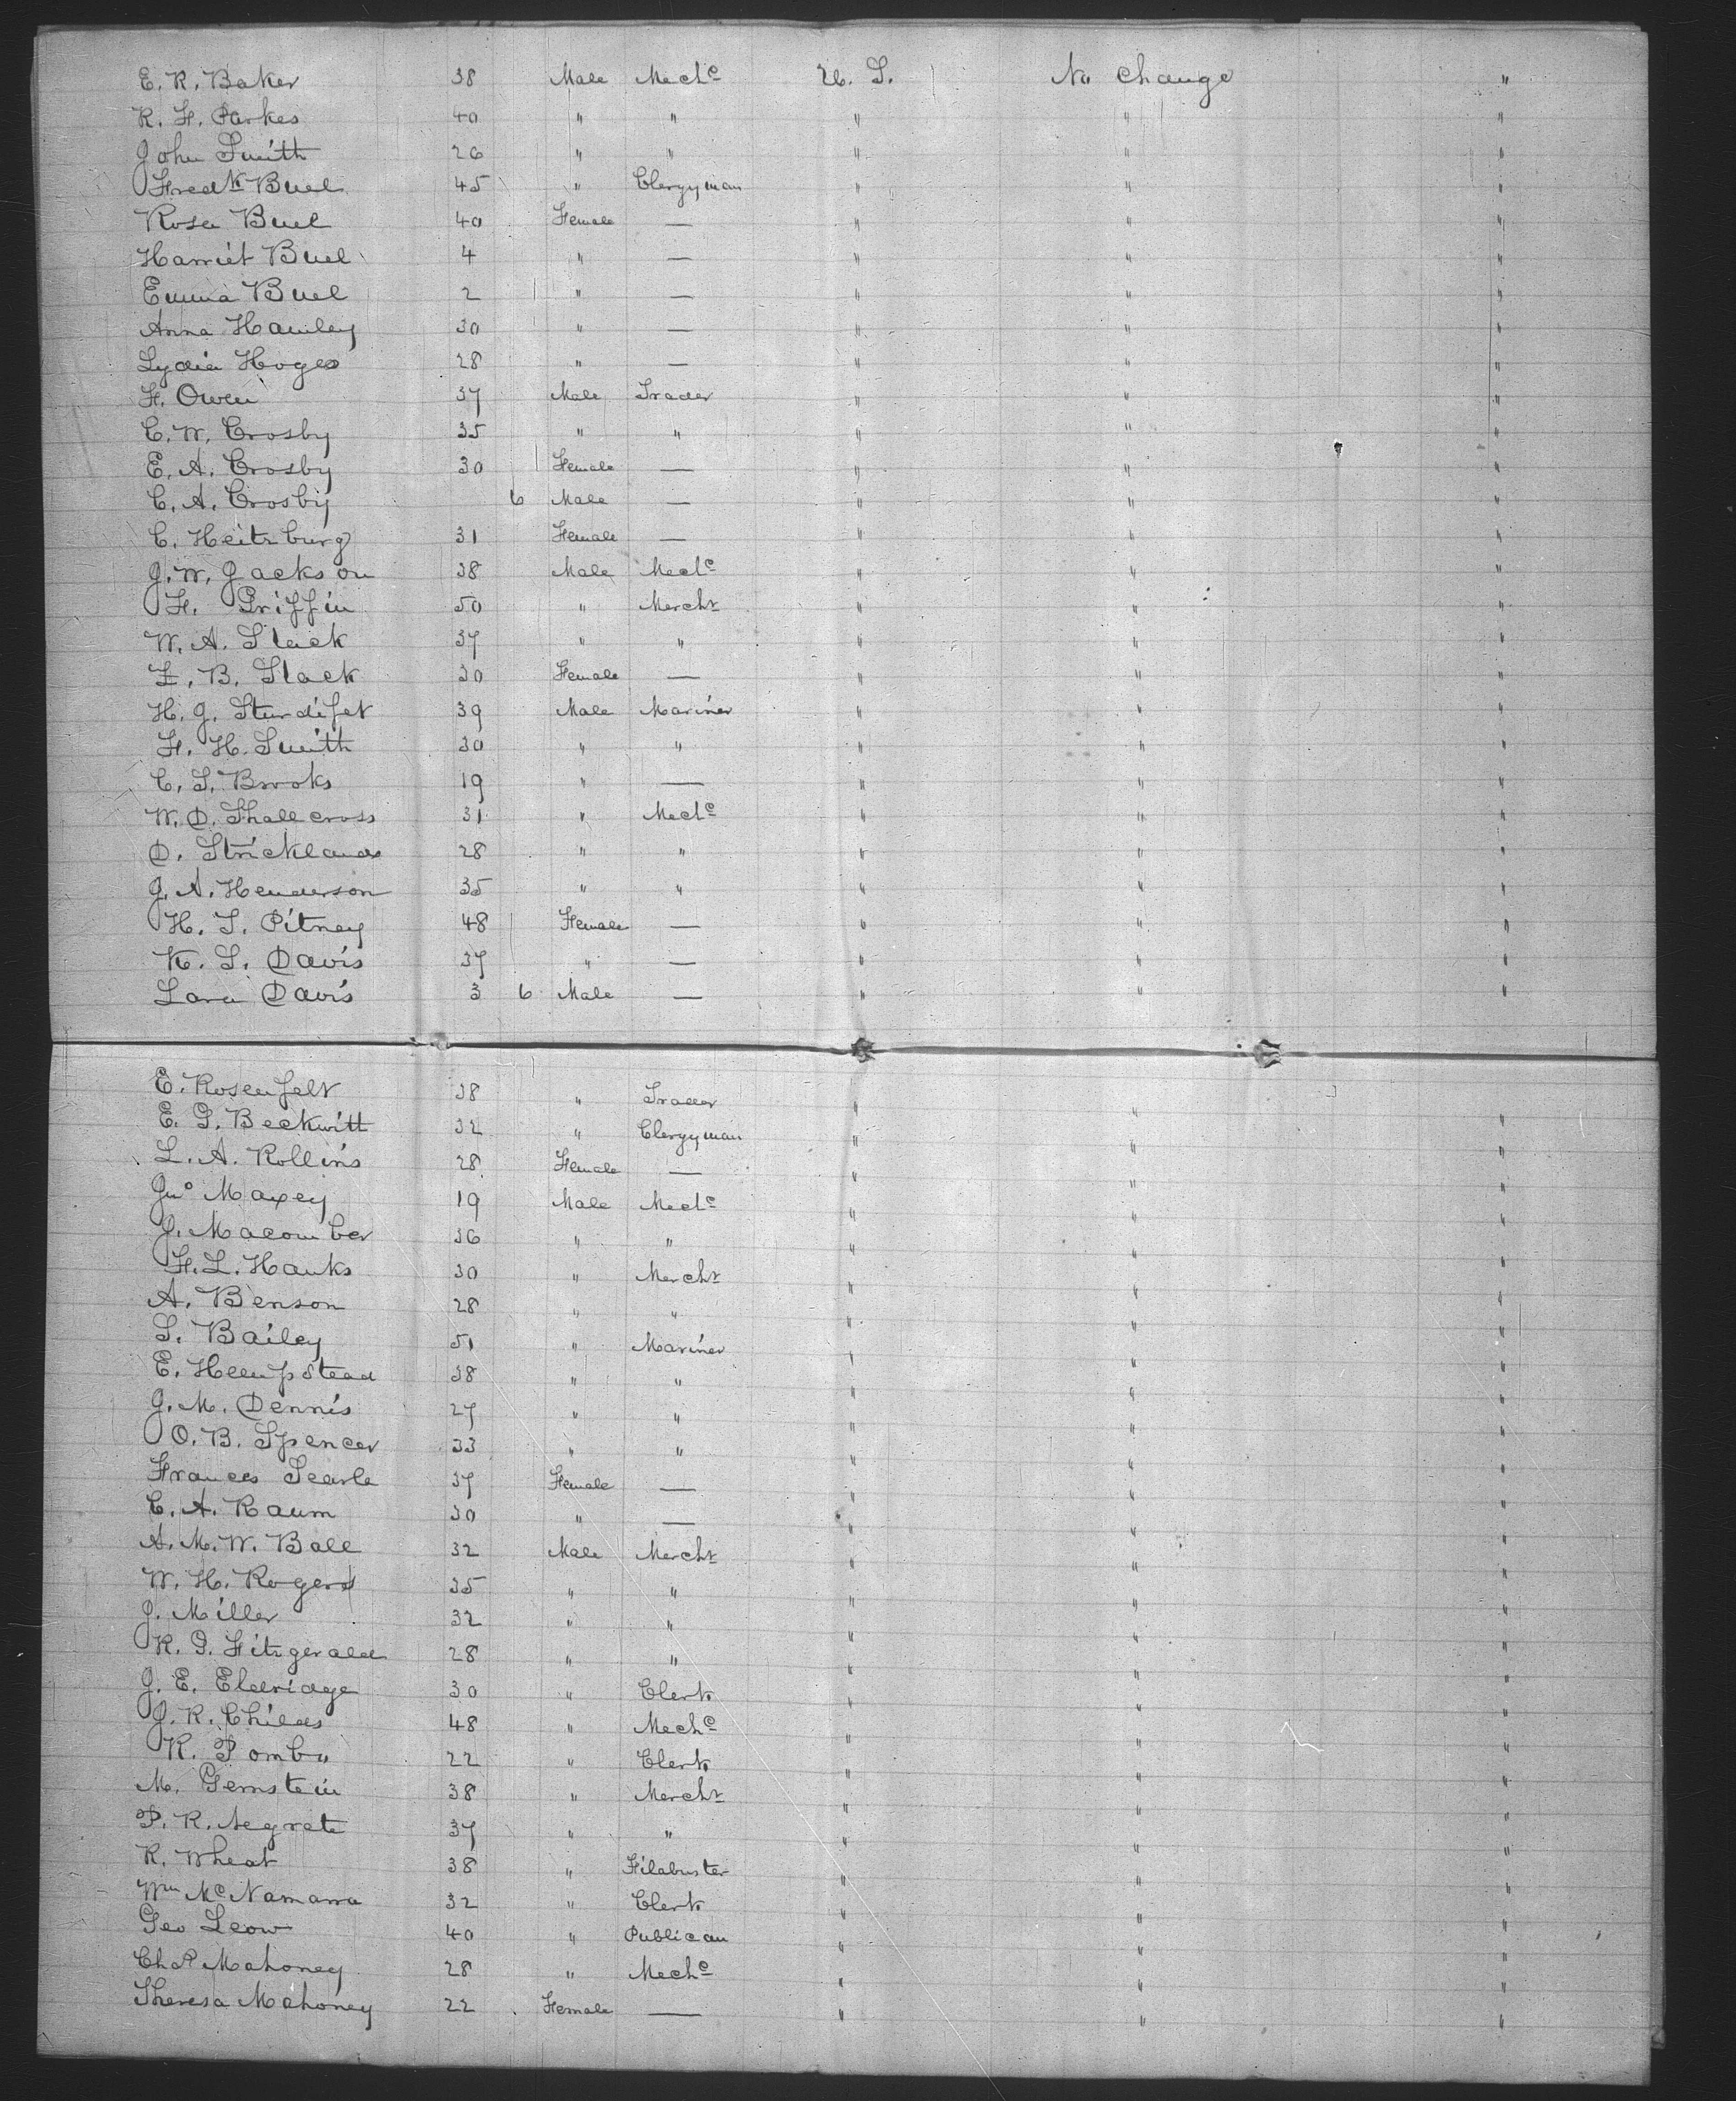 E. R. Baker 38 Male Mechc U. S. No Change "
R. H. Parkes 40 " " " " "
John Smith 26 " " " " "
Fredk Buel 45 " Clergyman " " "
Rosa Buel 40 Female — " " "
Harriet Buel 4 " — " " "
Emma Buel 2 " — " " "
Anna Hawley 30 " — " " "
Lydia Hoges 28 " — " " "
H. Owen 37 Male Trader " " "
C. W. Crosby 35 " " " " "
E. A. Crosby 30 Female — " " "
C. A. Crosby 6 Male — " " "
C. Heitzburg 31 Female — " " "
J. W. Jackson 38 Male Mechc " " "
H. Griffin 50 " Mercht " " "
W. A. Slack 37 " " " " "
Z. B. Slack 30 Female — " " "
H. J. Sturdifet 39 Male Mariner " " "
H. H. Smith 30 " " " " "
C. S. Brooks 19 " — " " "
W. D. Shallcross 31 " Mechc " " "
D. Stricklands 28 " " " " "
J. A. Henderson 35 " " " " "
H. S. Pitney 48 Female — " " "
K. S. Davis 37 " — " " "
Lara Davis 3 6 Male — " " "
E. Rosenfelt 38 " Trader " " "
E. G. Beckwitt 32 " Clergyman " " "
L. A. Rollins 28 Female — " " "
Jno Maxey 19 Male Mechc " " "
J. Macomber 36 " " " " "
H. L. Hanks 30 " Mercht " " "
A. Benson 28 " " " " "
S. Bailey 51 " Mariner " " "
E. Hempstead 38 " " " " "
J. M. Dennis 27 " " " " "
O. B. Spencer 33 " " " " "
Frances Searle 37 Female — " " "
C. A. Raum 30 " — " " "
A. M. W. Ball 32 Male Mercht " " "
W. H. Rogers 35 " " " " "
J. Miller 32 " " " " "
R. G. Fitzgerald 28 " " " " "
J. E. Eldridge 30 " Clerk " " "
J. R. Childs 48 " Mechc " " "
R. Pombo 22 " Clerk " " "
M. Gernstein 38 " Mercht " " "
P. R. Negrete 37 " " " " "
R. Wheat 38 " Filabuster " " "
Wm McNamara 32 " Clerk " " "
Geo Leow 40 " Publican " " "
Chas Mahoney 28 " Mechc " " "
Theresa Mahoney 22 Female — " " "